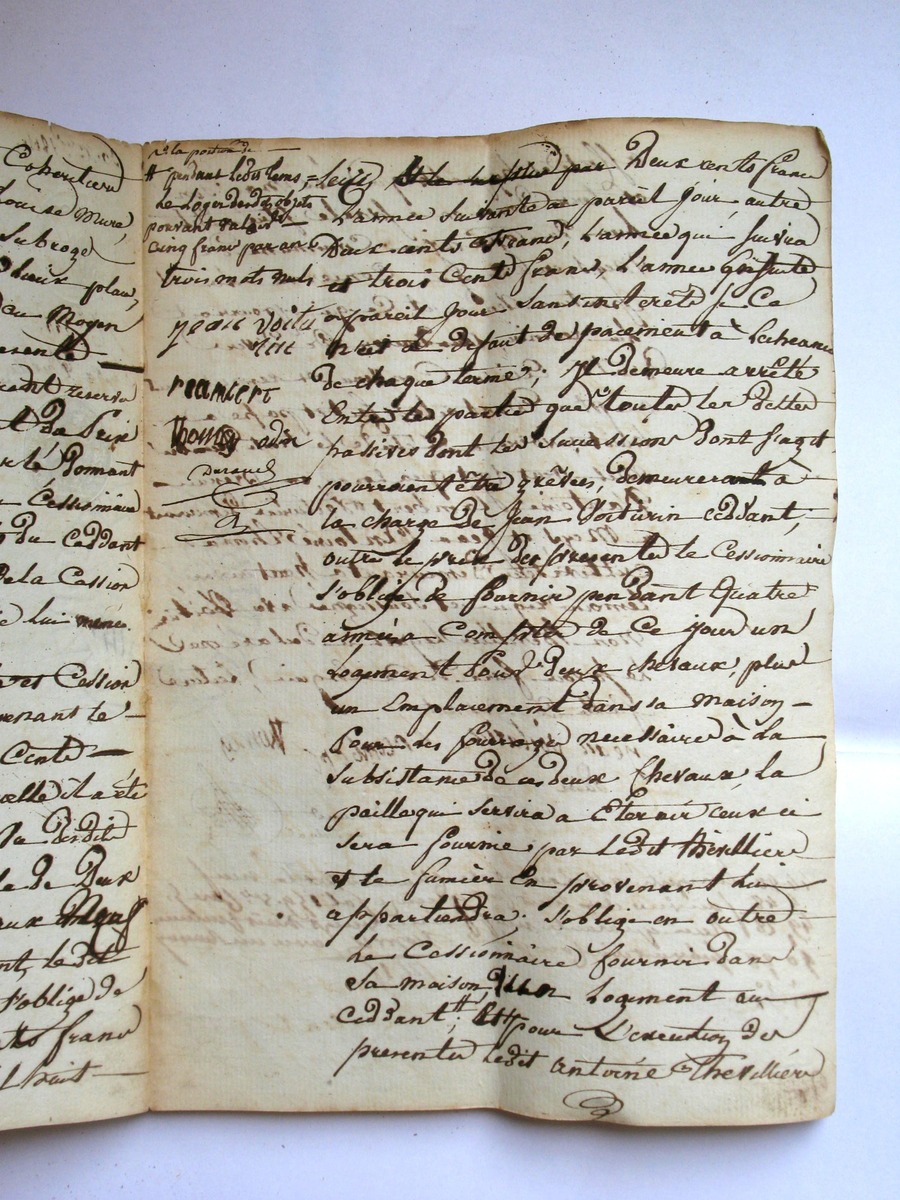 Coheritiers
mure,
subrogé
plus,
au moyen
presente
reserva
t du prix
donnant
Cessionnaire
du ceddant
De la Cession
lui meme.
et Cession
venant le
Cents
elle il a été
dudit
le de Deux
eux Neuf
nt ledit
s'oblige de
ts francs
huit
a la portion de
# pendant ledit tems,
le loger des objets
pouvant valoir
cinq francs par an
trois mots nuls
jean voitu
rin
thomas odin
Durand
par Deux cents francs
L'année suivante a pareil jour, autre
Deux cents francs, L'année qui suivra
et trois Cents francs, L'année ensuite
a pareil jour sans interêts, Ce
n'est a defaut de paiement à Lecheance
De chaque terme; il demeure arrêté
Entre les parties que toutes les dettes
passives dont les successions dont s'agit
pourroient être grêvées, demeureront à
la charge de Jean Voiturin ceddant;
outre le prix des presentes le cessionnaire
s'oblige de fournir pendant quatre
années a compter de ce jour un
Logement pour deux chevaux, plus
un emplacement dans sa maison
pour les fourrages necessaire à la
subsistance de ces deux Chevaux, la
paille qui servira a eternir ceux ci
sera fournie par ledit thevillier
et le fumier en provenant lui
appartiendra. s'oblige en outre
le cessionnaire fournir dans
sa maison un Logement au
ceddant #; pour L'execution des
presentes ledit antoine thevilliere